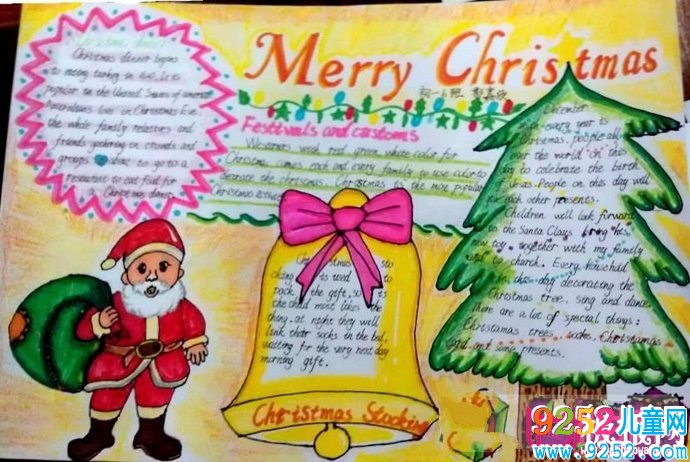 Merry Christmas
初一6班
Christmas dinner
Christmas dinner begins
to eating turkey in 1620. It is
popular in the United States of america
Americans live on Christmas Eve.
the whole family relatives and
friends gathering in crowds and
groups want to go to a
restaurant to eat food for
a Christmas dinner
Festivals and castoms
Westerners with red, green, white color for
Christmas comes, each and every family to use color to
decorate the christmas. Christmas is the most popular
Christmas
December
every year is
Christmas, people all
over the world on this
day to celebrate the birth
Jesus. People on this day will
each other presents.
Children will look forward
to the Santa Claus bring his
new toy. together with my family
went to church. Every household
in this day decorating the
Christmas tree, sing and dance.
There are a lot of special things:
Christamas trees. socks. Christamas
card and song. presents.
Christmas sto
cking is used to
pack the gift, so
the child most likes the
thing, at night they will
link their socks in the bed,
waiting for the very next day
morning gift.
Christmas Stocking
9252儿童网
www.9252.com